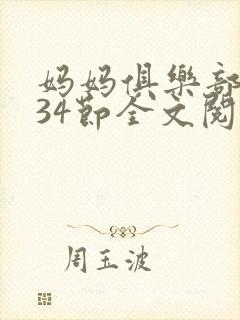 妈妈俱樂部
34節全文閱
周玉波